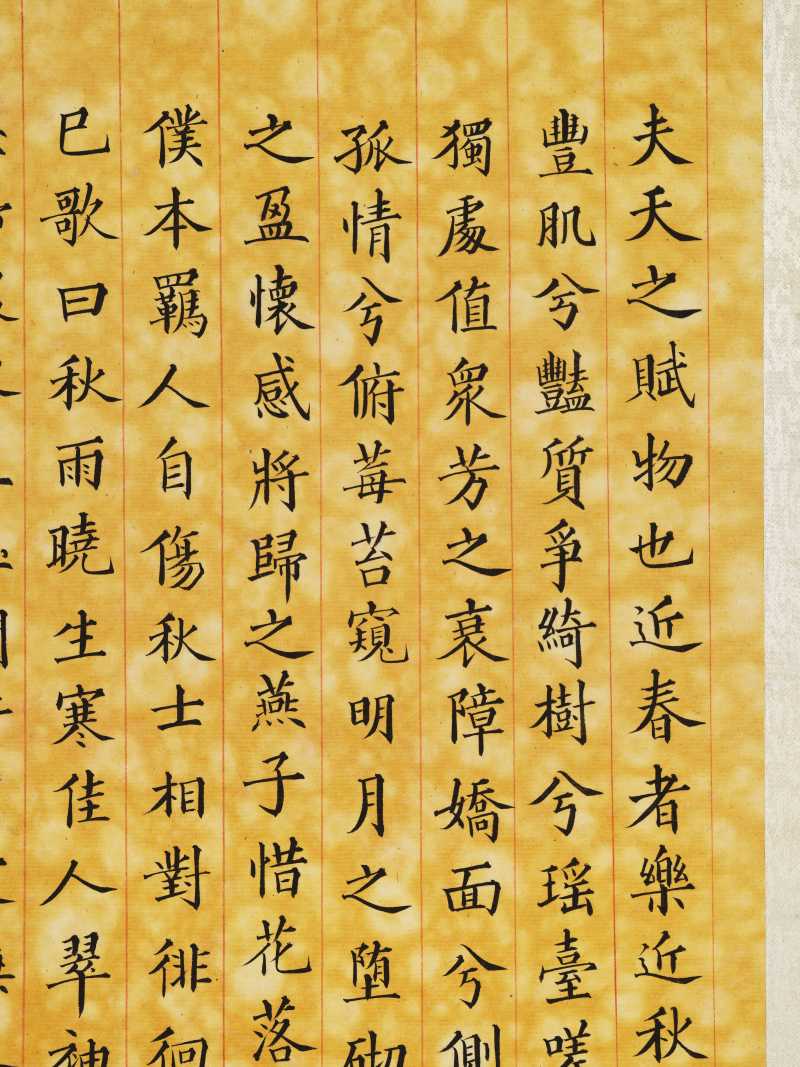 夫天之賦物也近春者樂近秋
豐肌兮豔質爭綺樹兮瑶臺嗟
獨處值衆芳之衰障嬌面兮側
孤情兮俯莓苔窺明月之堕砌
之盈懷感將歸之燕子惜花落
僕本羈人自傷秋士相對徘徊
巳歌曰秋雨曉生寒佳人翠神